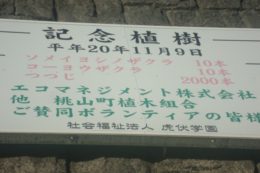 記念植樹
平年20年11月9日
ソメイヨシノザクラ 10本
ヨーヨウザクラ 10本
つつじ 2000本
エコマネジメント株式会社
他 桃山町植木組合
ご賛同ボランティアの皆様
社会福祉法人 虎伏学園